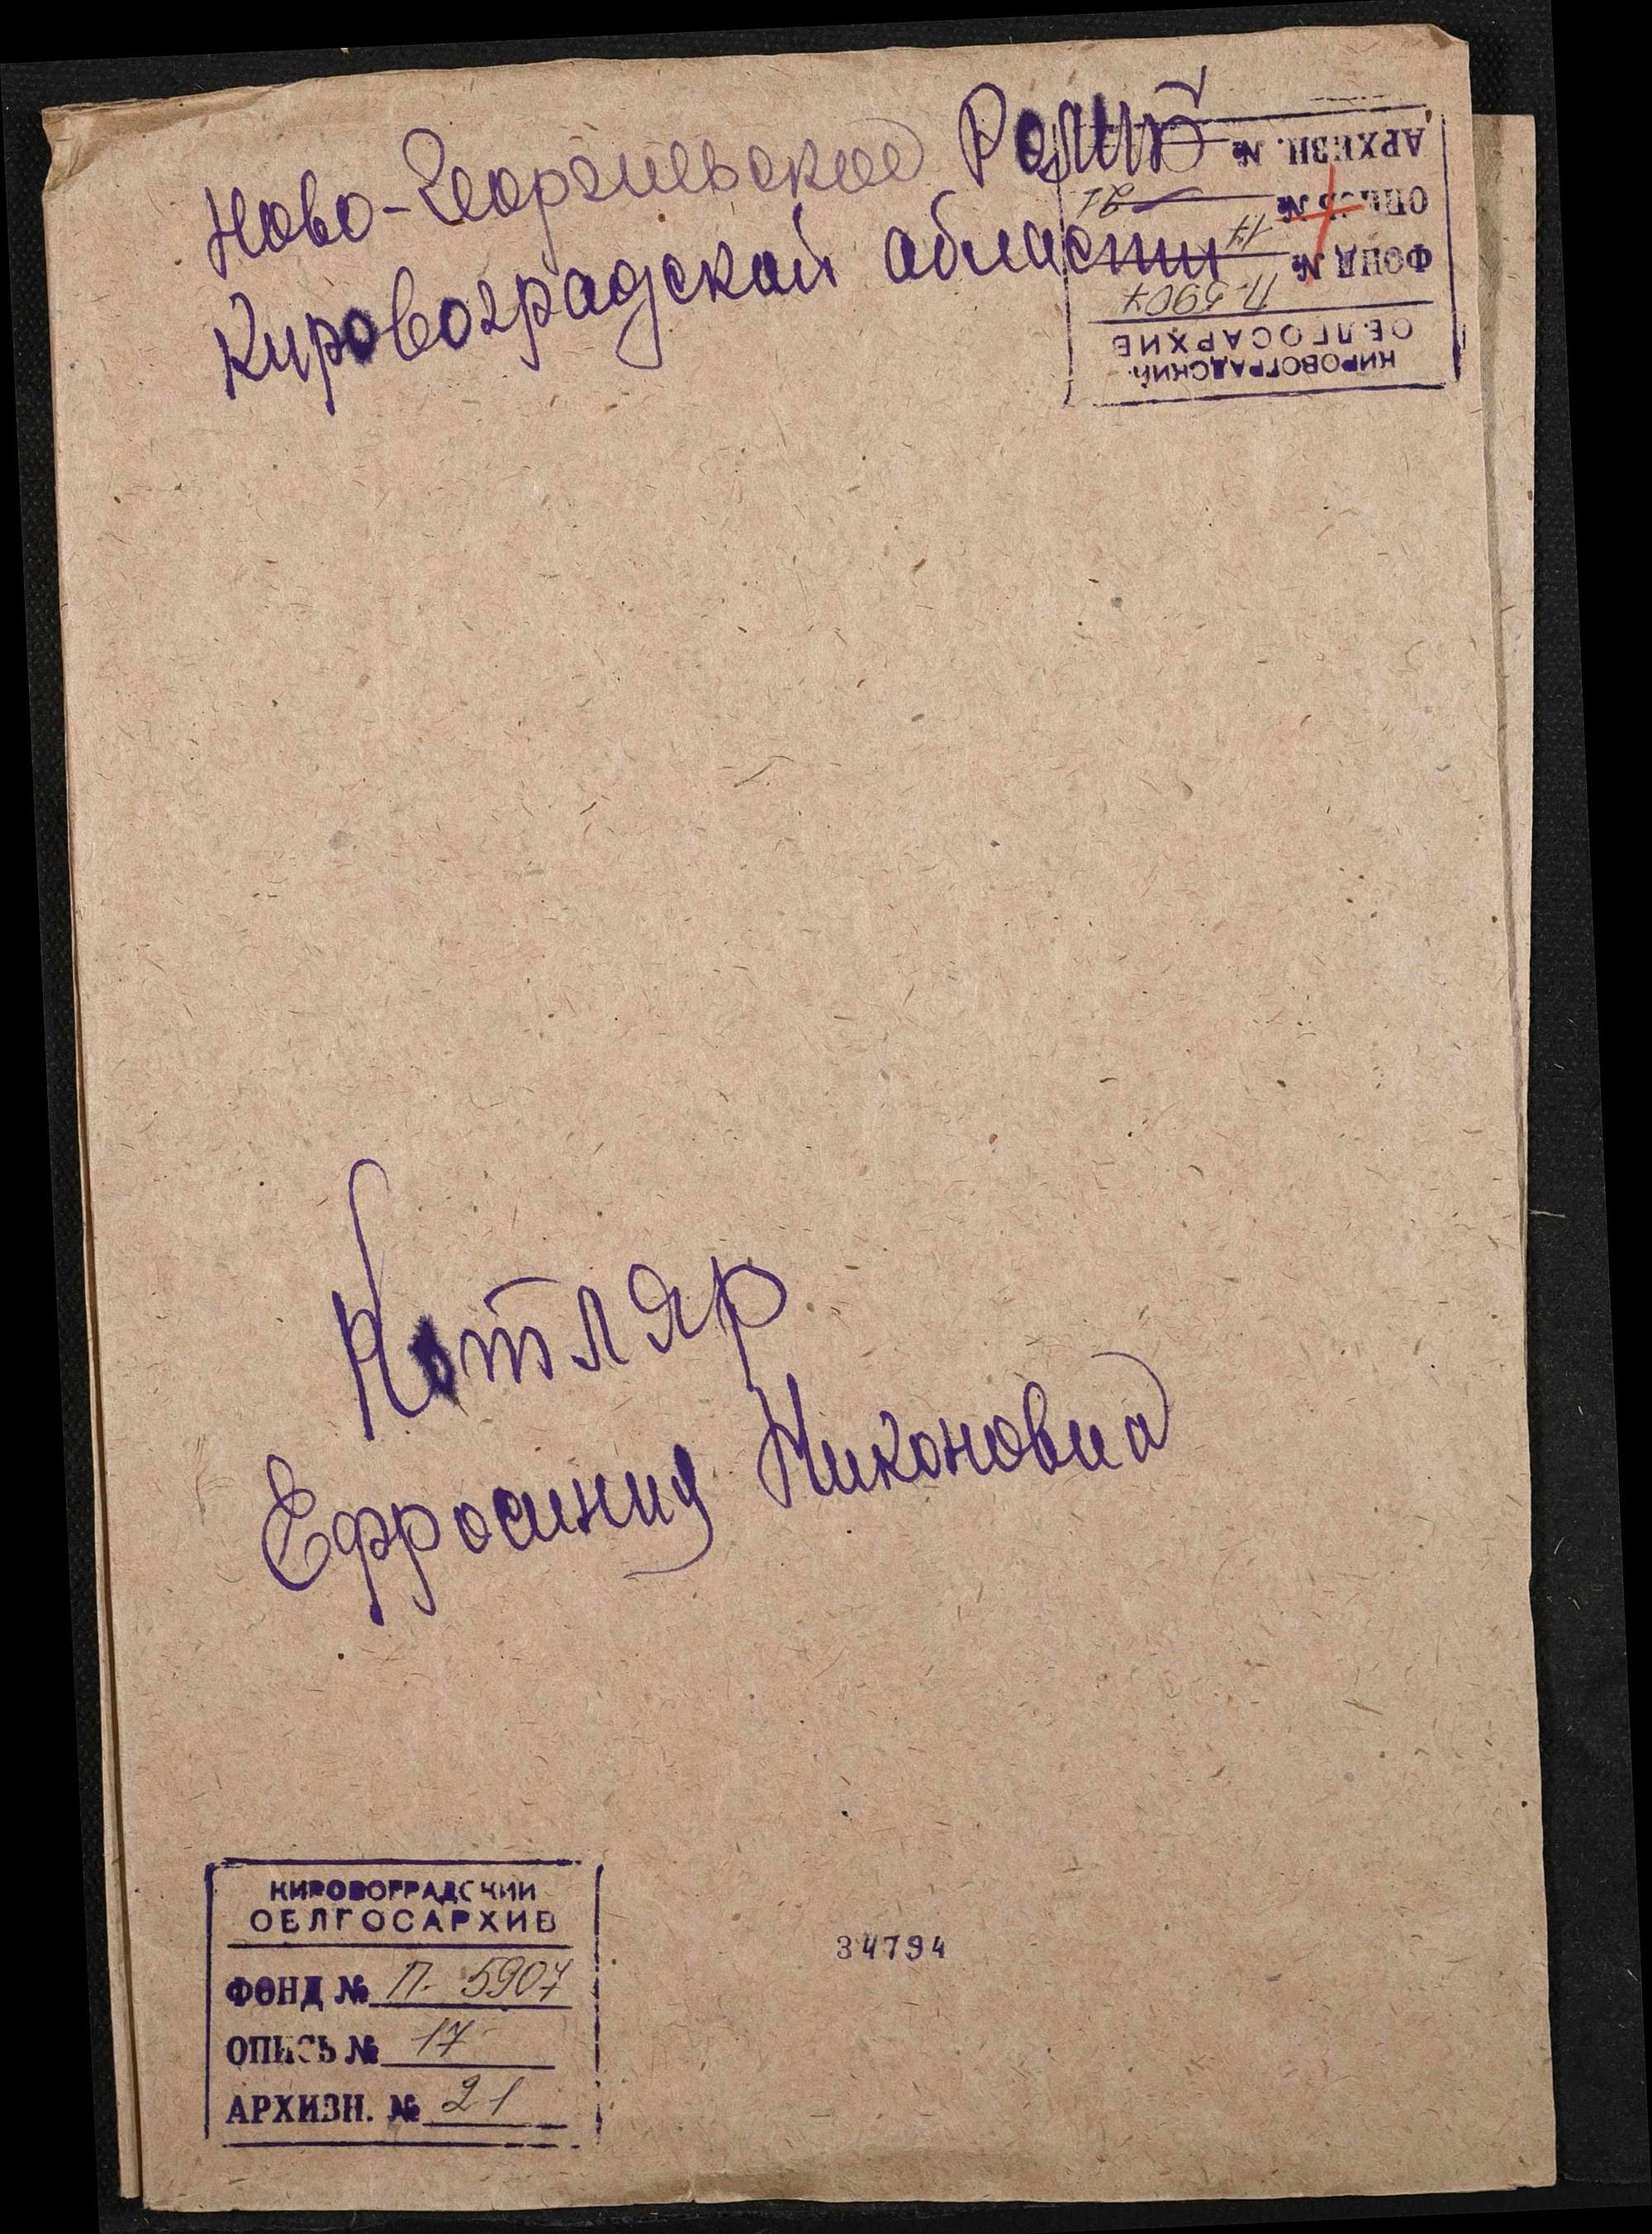 Ново-Георгиевское
Кировоградской области
КИРОВОГРАДСКИЙ
ОБЛГОСАРХИВ
ФОНД № П-5907
ОПИСЬ № 17
АРХИВН. № 21
Котляр
Ефросиния Никоновна
КИРОВОГРАДСКИЙ
ОБЛГОСАРХИВ
ФОНД № П-5907
ОПИСЬ № 17
АРХИВН. № 21
34794